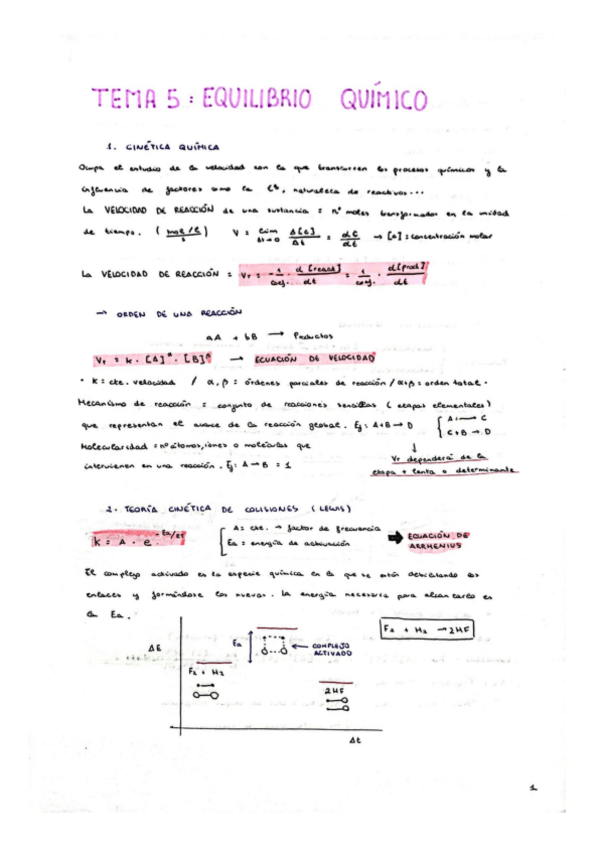 TEMA 5: EQUILIBRIO QUÍMICO
1. CINÉTICA QUÍMICA
Ocupa el estudio de la velocidad con la que transcurren los procesos químicos y la
influencia de factores como la Cº, naturaleza de reactivos...
La VELOCIDAD DE REACCIÓN de una sustancia = nº moles transformados en la unidad
de tiempo. ( mol/L / s ) V = lim Δt→0 Δ[c]/Δt = dC/dt → [c] = concentración molar
La VELOCIDAD DE REACCIÓN = Vr = - 1/coef. · d[react]/dt = 1/coef. · d[prod]/dt
→ ORDEN DE UNA REACCIÓN
aA + bB → Productos
Vr = k · [A]^α · [B]^β → ECUACIÓN DE VELOCIDAD
· K = cte. velocidad / α, β = órdenes parciales de reacción / α+β = orden total.
Mecanismo de reacción = conjunto de reacciones sencillas (etapas elementales)
que representan el avance de la reacción global. Ej: A+B → D { A → C
C+B → D
Molecularidad = nº átomos, iones o moléculas que
↓
intervienen en una reacción. Ej: A → B = 1
Vr dependerá de la
etapa + lenta o determinante
2. TEORÍA CINÉTICA DE COLISIONES (LEWIS)
k = A · e^-Ea/RT
A = cte. → factor de frecuencia
Ea = energía de activación
ECUACIÓN DE
ARRHENIUS
El complejo activado es la especie química en la que se están debilitando los
enlaces y formándose los nuevos. La energía necesaria para alcanzarlo es
la Ea.
F₂ + H₂ → 2HF
ΔE
Ea
COMPLEJO
ACTIVADO
F₂ + H₂
2HF
Δt
1